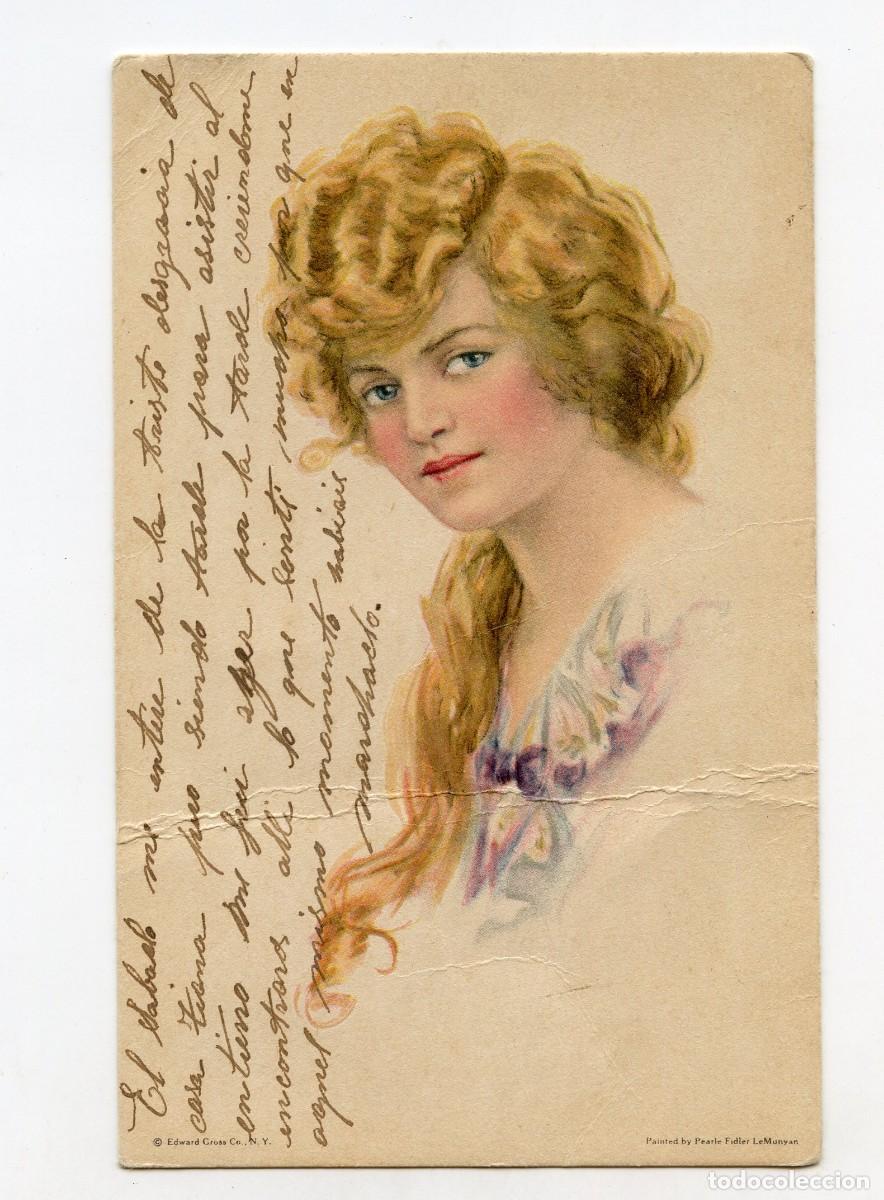 El sabado me entire de la triste desgracia de
casa Tiana pero siendo tarde para asistir al
entiero me fui ayer por la tarde creiendome
encontraros alli lo que senti mucho por que en
aquel mismo momento habiais
marchado.
© Edward Gross Co., N. Y.
Painted by Pearle Fidler LeMunyan
todocoleccion